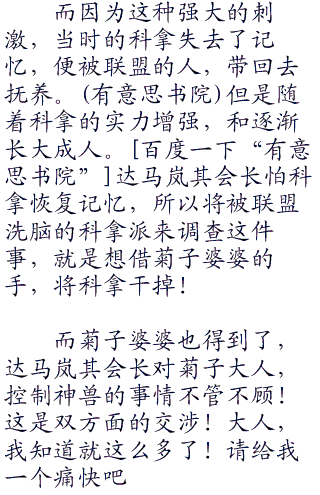 而因为这种强大的刺
激，当时的科拿失去了记
忆，便被联盟的人，带回去
抚养。(有意思书院)但是随
着科拿的实力增强，和逐渐
长大成人。[百度一下“有意
思书院”]达马岚其会长怕科
拿恢复记忆，所以将被联盟
洗脑的科拿派来调查这件
事，就是想借菊子婆婆的
手，将科拿干掉！
而菊子婆婆也得到了，
达马岚其会长对菊子大人，
控制神兽的事情不管不顾！
这是双方面的交涉！大人，
我知道就这么多了！请给我
一个痛快吧